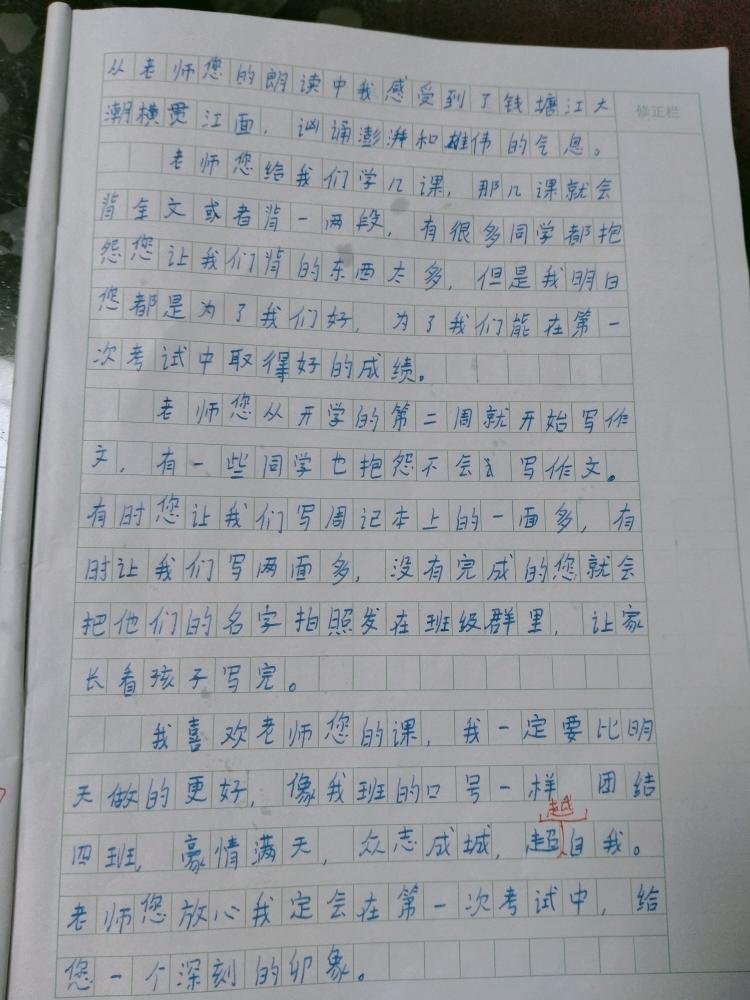 从老师您的朗读中我感受到了钱塘江大
修正栏
潮横贯江面，汹涌澎湃和雄伟的气息。
老师您给我们学几课，那几课就会
背全文或者背一两段，有很多同学都抱
怨您让我们背的东西太多，但是我明白
您都是为了我们好，为了我们能在第一
次考试中取得好的成绩。
老师您从开学的第二周就开始写作
文，有一些同学也抱怨不会写作文。
有时您让我们写周记本上的一面多，有
时让我们写两面多，没有完成的您就会
把他们的名字拍照发在班级群里，让家
长看孩子写完。
我喜欢老师您的课，我一定要比明
天做的更好，像我班的口号一样 团结
四班，豪情满天，众志成城，超越自我。
老师您放心我定会在第一次考试中，给
您一个深刻的印象。